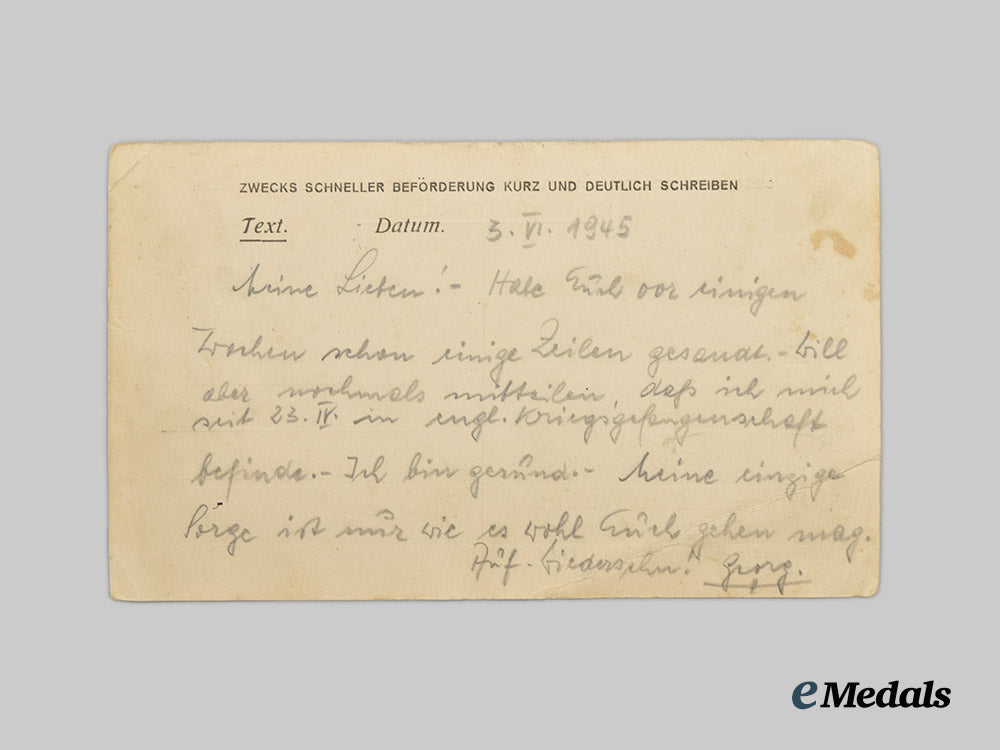 ZWECKS SCHNELLER BEFÖRDERUNG KURZ UND DEUTLICH SCHREIBEN
Text. Datum. 3. VI. 1945
Meine Lieben! - Habe Euch vor einigen
Wochen schon einige Zeilen gesandt. - Will
aber nochmals mitteilen, daß ich mich
seit 23. IV. in engl. Kriegsgefangenschaft
befinde. - Ich bin gesund. - Meine einzige
Sorge ist nur wie es wohl Euch gehen mag.
Auf - Wiedersehn! Georg.
eMedals